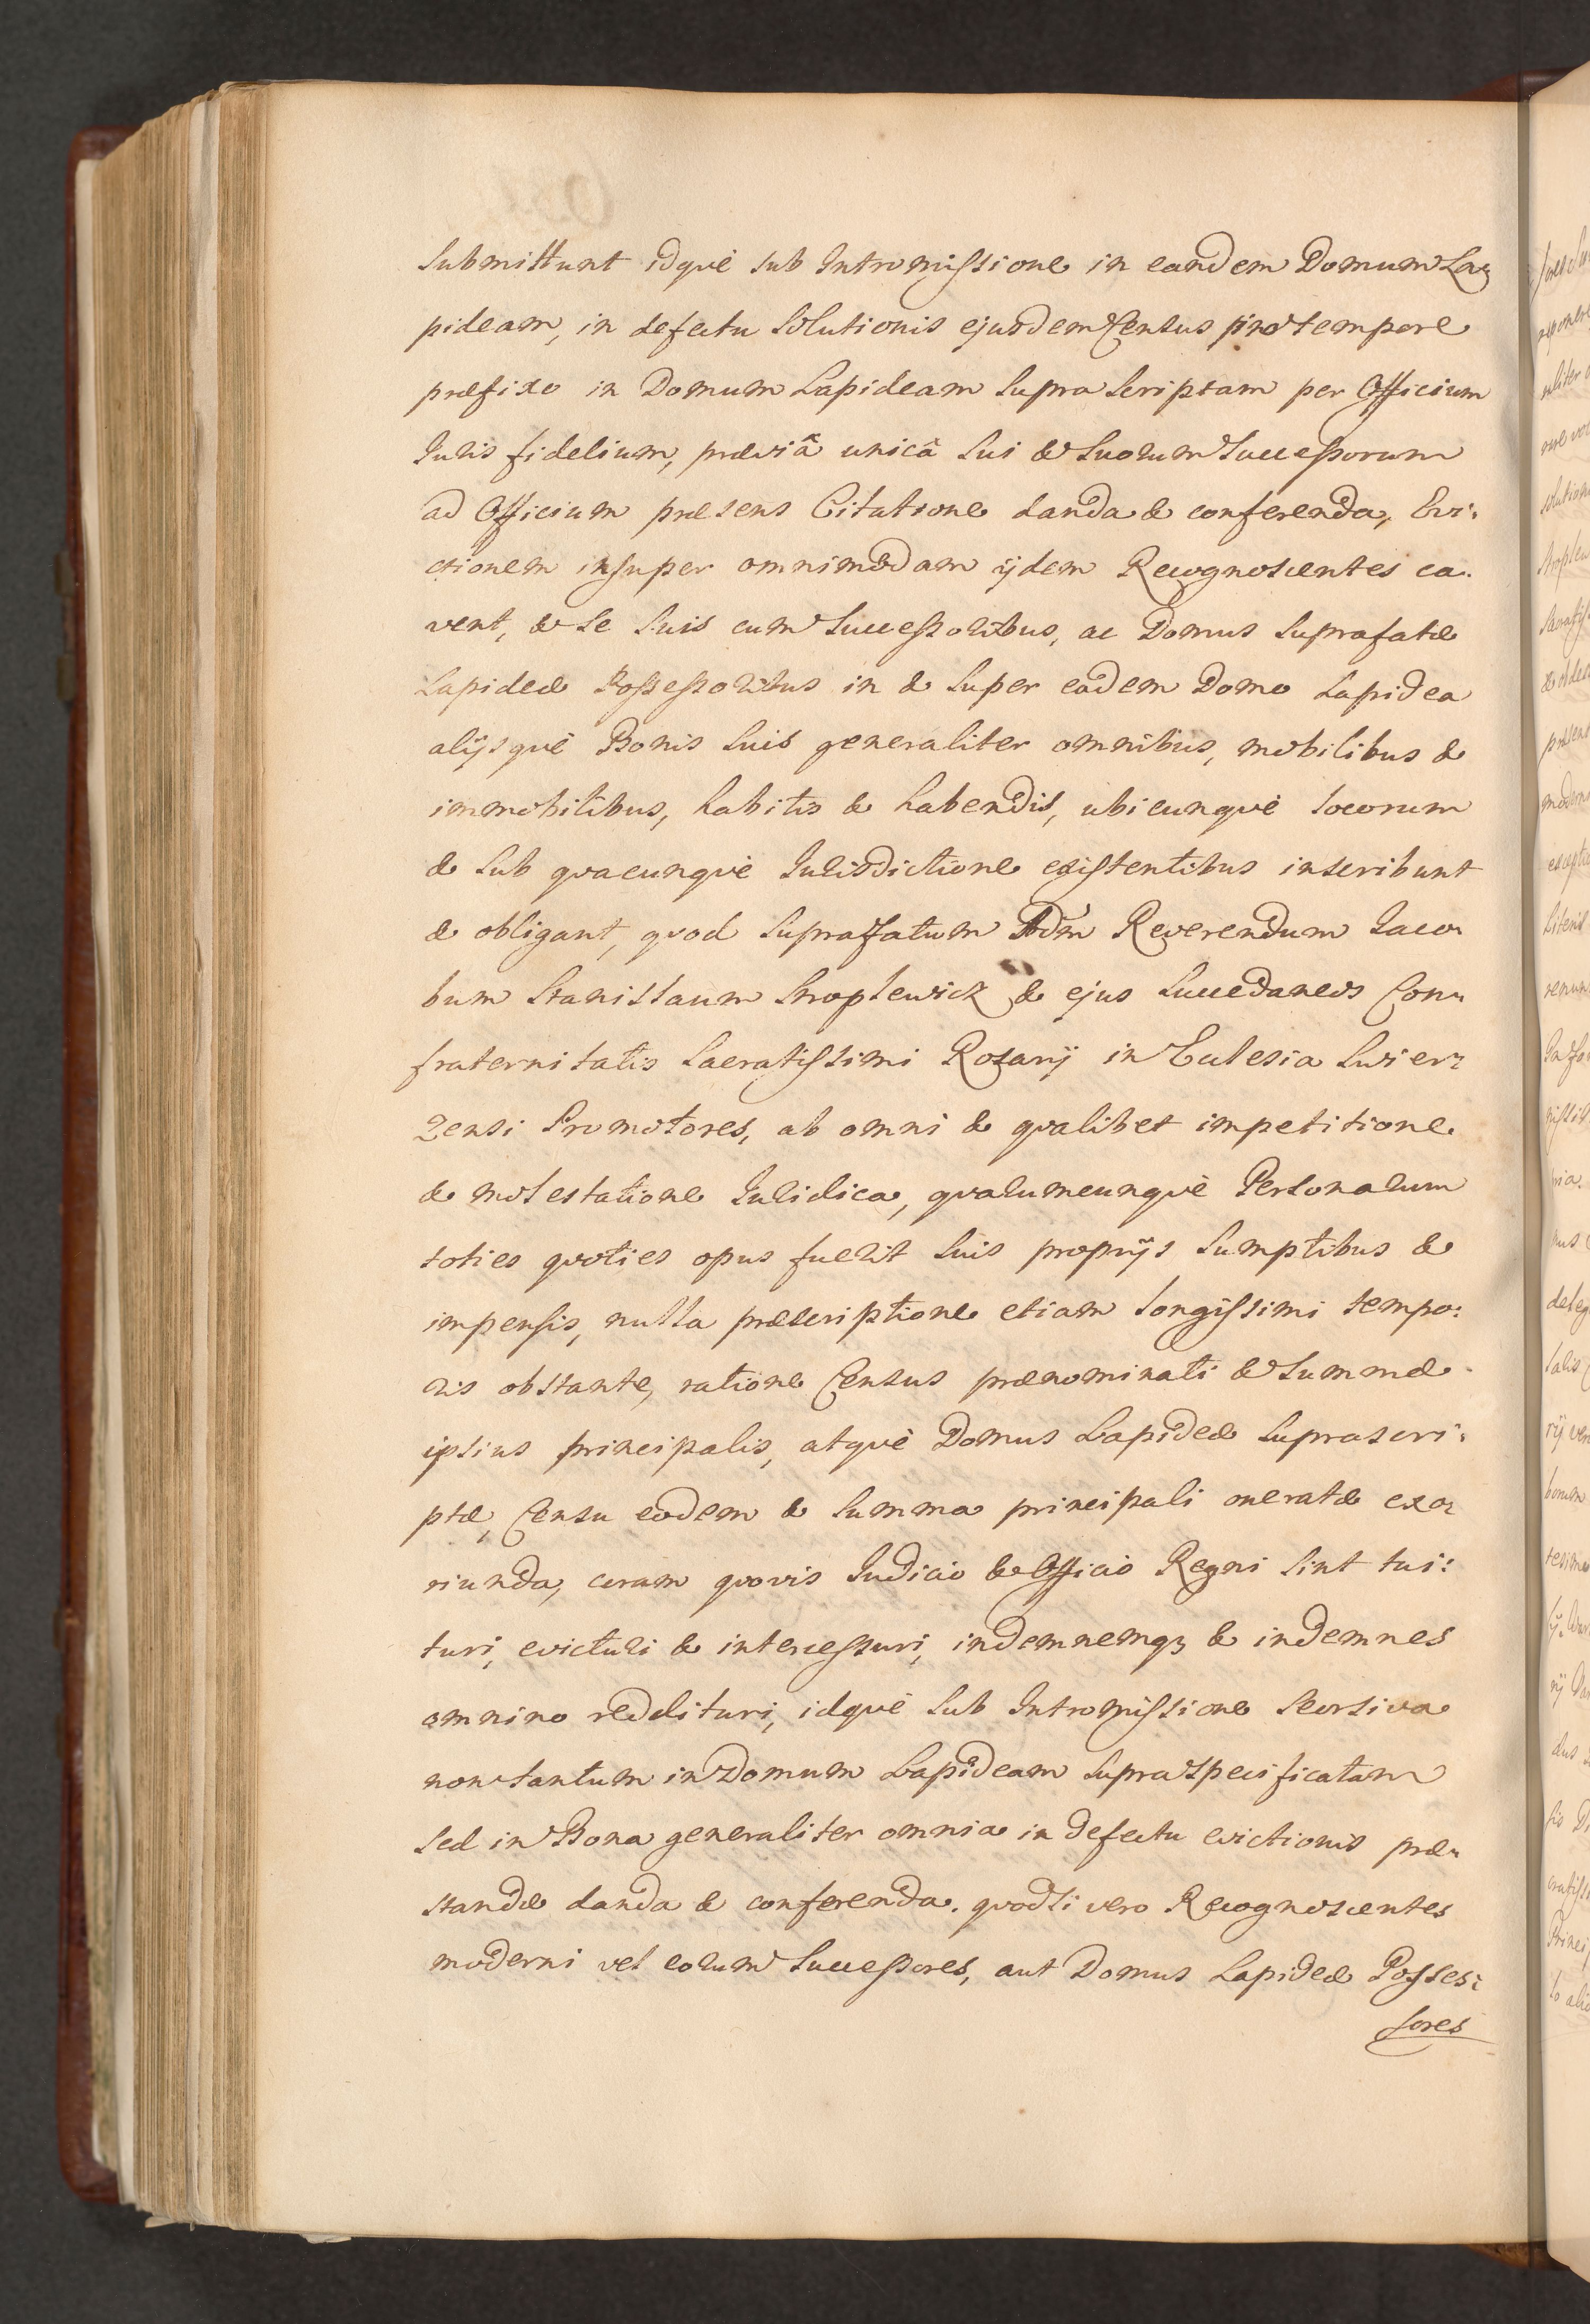 submittunt idquè sub Intromissione in eandem Domum La=
pideam, in defectu solutionis ejusdem Census pro tempore
præfixo in Domum Lapideam supra scriptam per Officium
Iuris fidelium, præviâ unicâ sui & suorum successorum
ad Officium præsens Citatione danda & conferenda, Evi=
ctionem insuper omnimodam ijdem Recognoscentes ca=
vent, & se suis cum successoribus, ac Domus suprafatæ
Lapideæ Possessoribus in & super eadem Domo Lapidea
alijsquè Bonis suis generaliter omnibus, mobilibus &
immobilibus, habitis & habendis, ubicunquè locorum
& sub quacunquè Iurisdictione existentibus inscribunt
& obligant, quod suprafatum Adm Reverendum Iaco=
bum Stanislaum Stroplewicz & ejus succedaneos Con=
fraternitatis sacratissimi Rosarij in Ecclesia Swier=
zensi Promotores, ab omni & qualibet impetitione
& molestatione Iuridica, quarumcunquè Personarum
toties quoties opus fuerit suis proprijs sumptibus &
impensis, nulla præscriptione etiam longissimi tempo=
ris obstante, ratione Census prænominati & summæ
ipsius principalis, atquè Domus Lapideæ suprascri=
ptæ, Censu eodem & summa principali oneratæ exo=
riunda, coram quovis Iudicio & Officio Regni sint tui=
turi, evicturi & intercessuri, indemnemq3 & indemnes
omnino reddituri, idquè sub Intromissione seorsiva
non tantum in Domum Lapideam supra specificatam
sed in Bona generaliter omnia in defectu evictionis præ=
standæ danda & conferenda. quodsi vero Recognoscentes
moderni vel eorum successores, aut Domus Lapideæ Posses=
sores